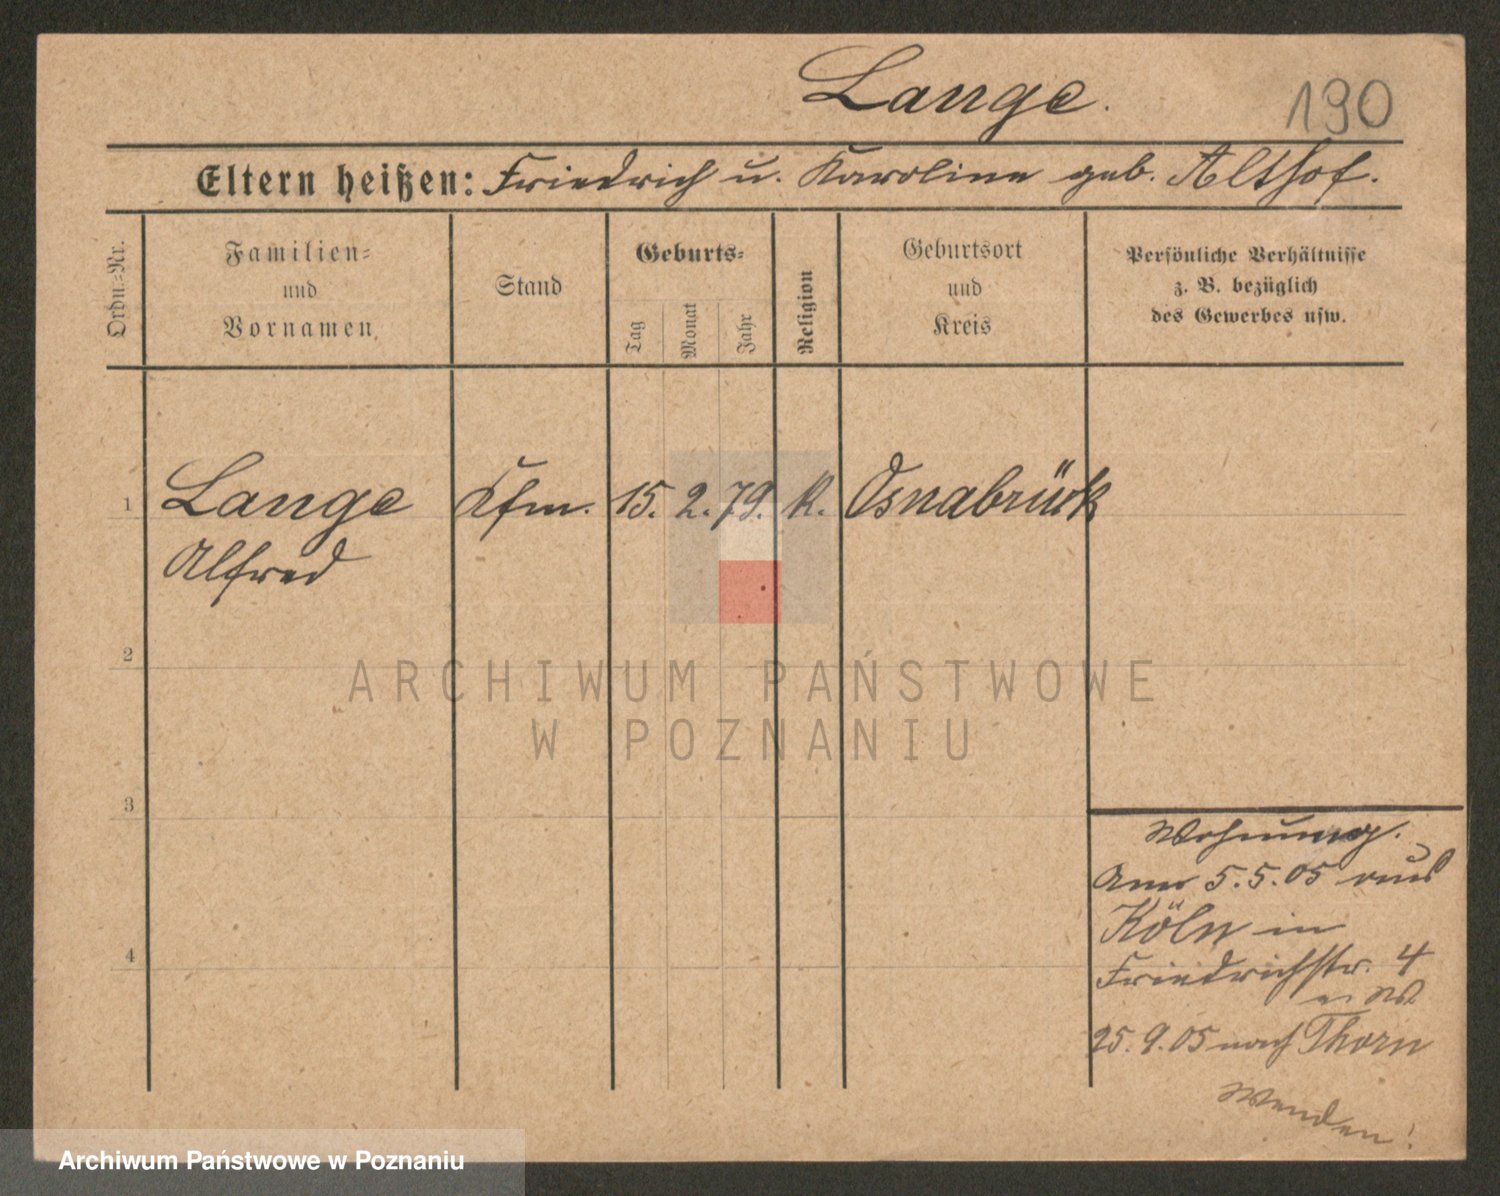 Lange.
190
Eltern heißen: Friedrich u. Karoline geb. Althof.
Ordn.-Nr.
Familien-
und
Vornamen
Stand
Geburts-
Tag
Monat
Jahr
Religion
Geburtsort
und
Kreis
Persönliche Verhältnisse
z. B. bezüglich
des Gewerbes usw.
1 Lange Kfm. 15. 2. 79. K. Osnabrück
Alfred
2
ARCHIWUM PAŃSTWOWE
W POZNANIU
3
4
Wohnung.
5.5.05 aus
Köln in
Friedrichstr. 4
25.9.05 nach Thorn
Wenden!
Archiwum Państwowe w Poznaniu